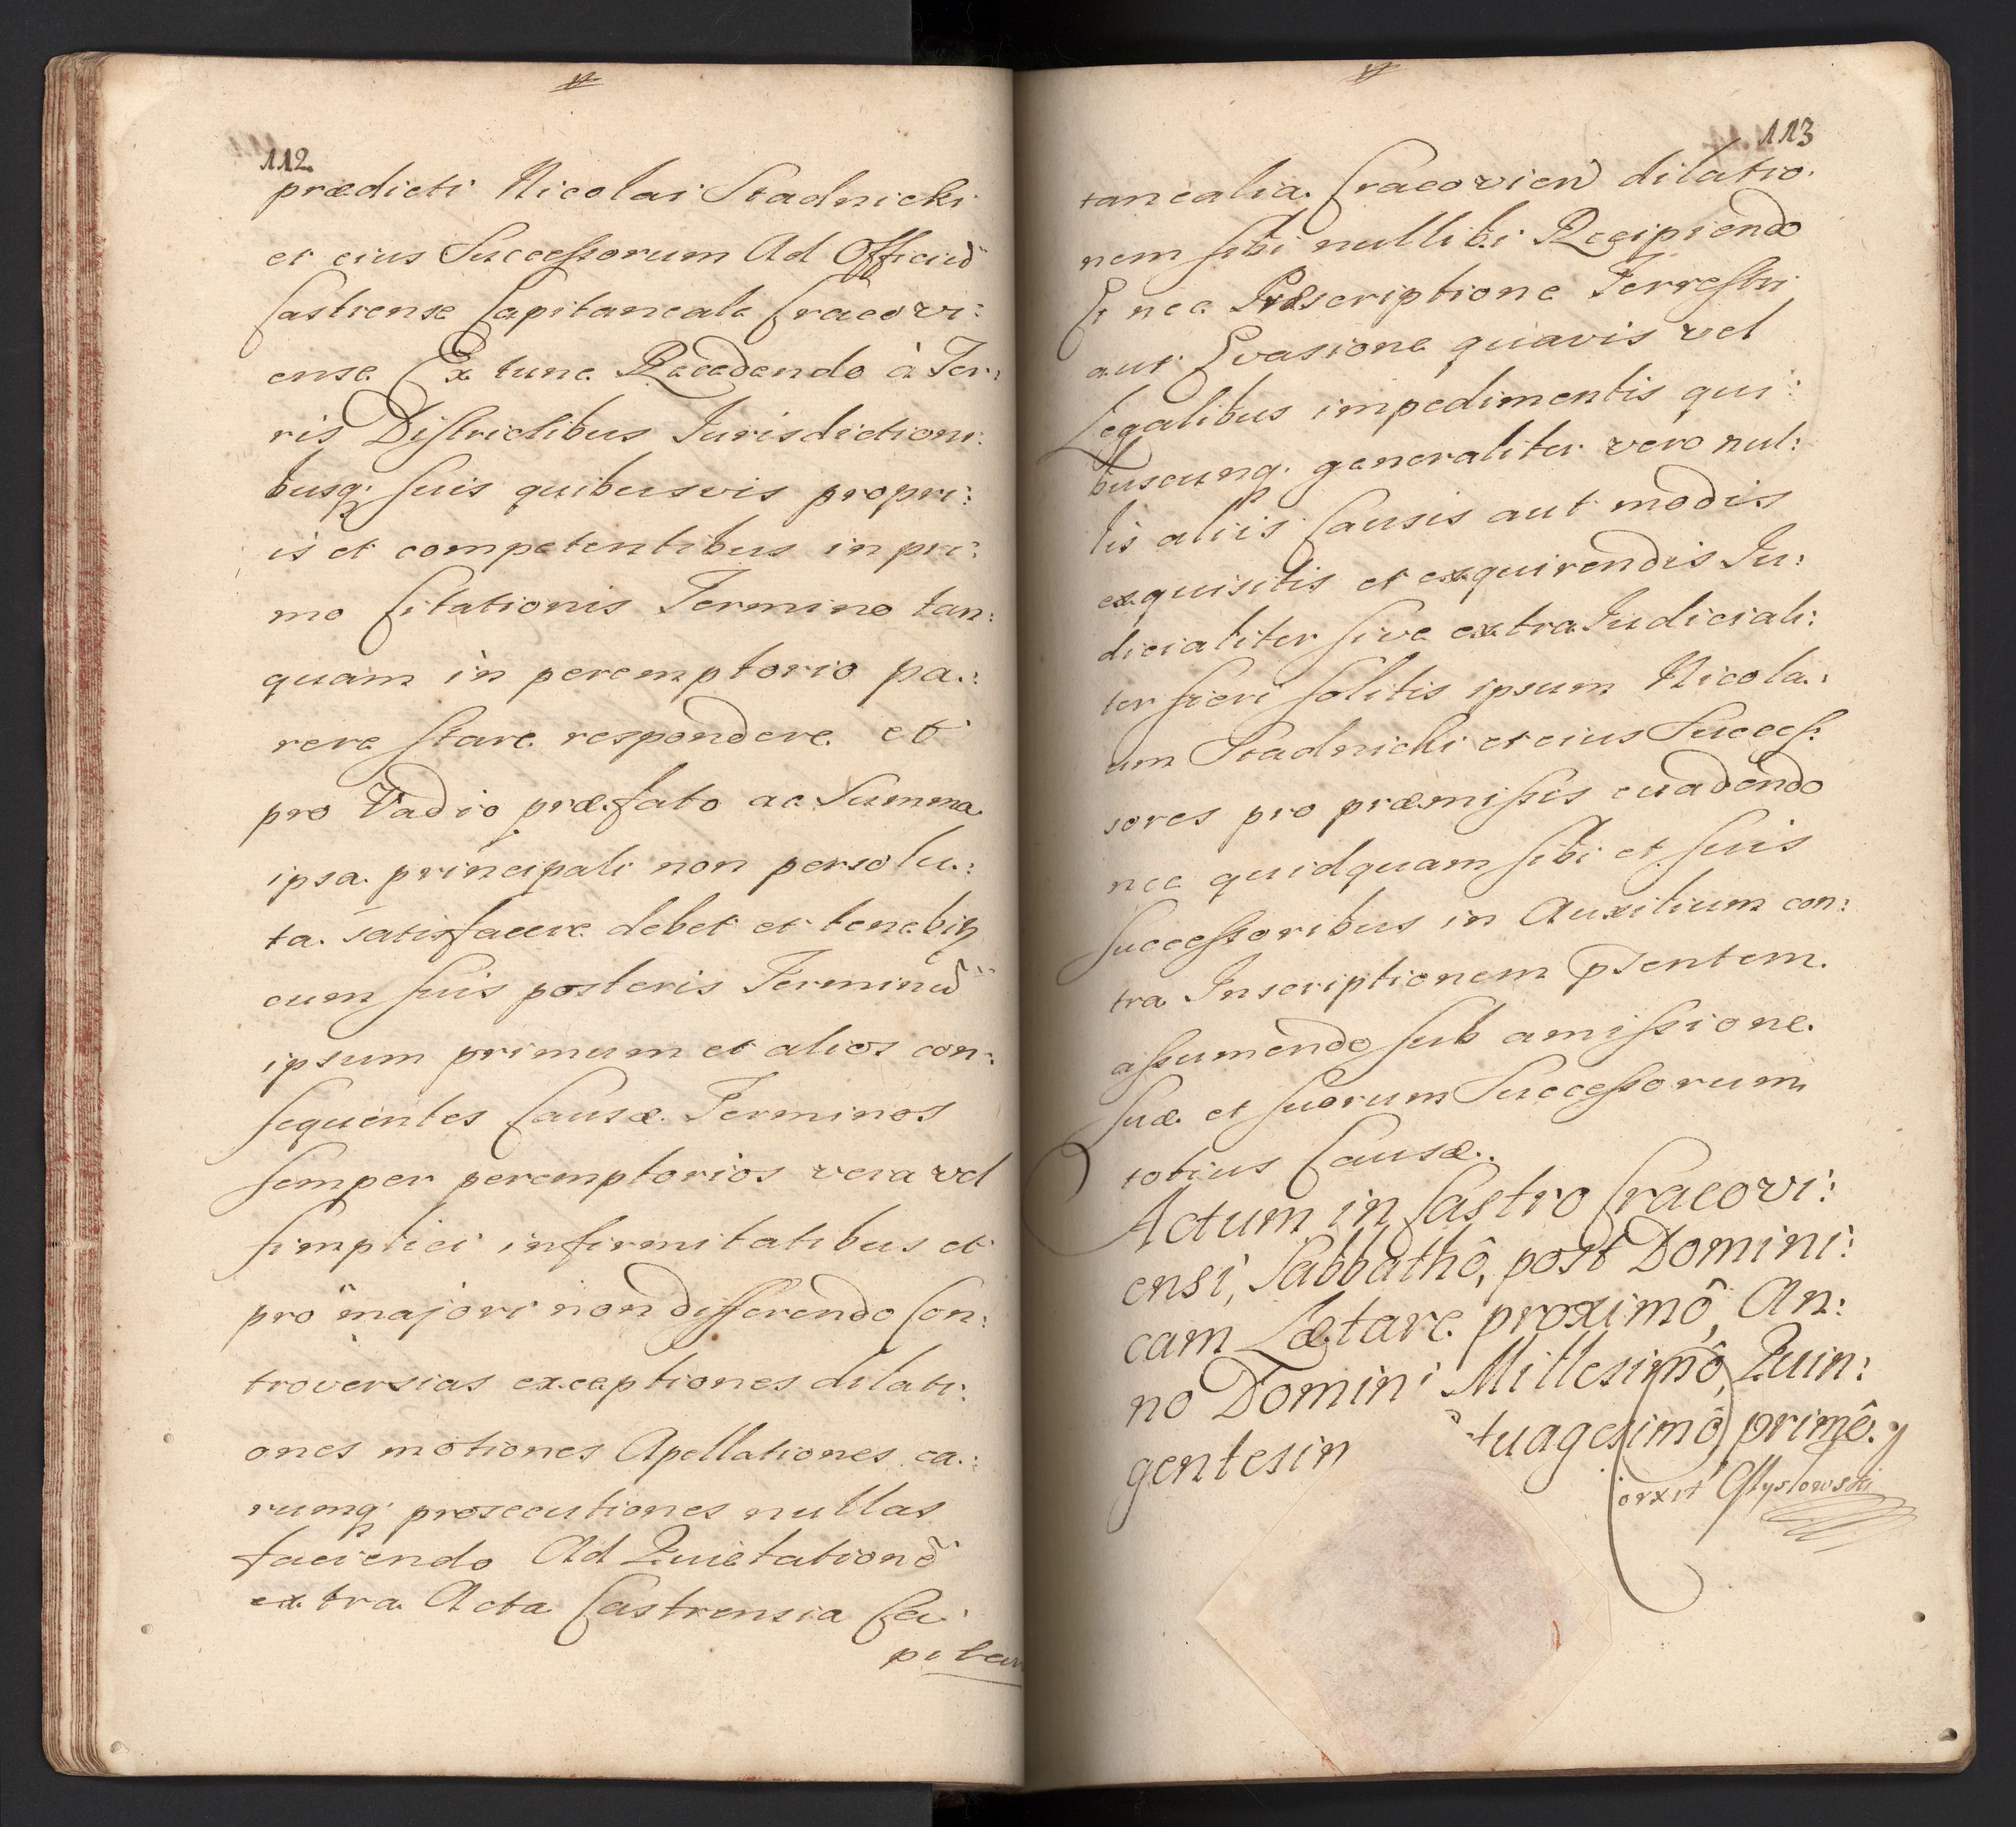 112
prædicti Nicolai Stadnicki
et eius Successorum Ad Officiū
Castrense Capitaneale Cracovi:
ense Ex tunc Recedendo à Ter:
ris Districtibus Jurisdictioni:
busq; suis quibusvis propri:
is et competentibus in pri:
mo Citationis Termino tan:
quam in peremptorio pa:
rere stare respondere et
pro Vadio præfato ac Summa
ipsa principali non persolu:
ta satisfacere debet et tenebit
cum suis posteris Terminū
ipsum primum et alios con:
sequentes Causæ Terminos
semper peremptorios vera vel
simplici infirmitatibus et
pro majori non differendo Con:
troversias exceptiones dilati:
ones motiones Apellationes ea:
rumq; prosecutiones nullas
faciendo Ad Quietationē
extra Acta Castrensia Ca:
pitan
113
tanealia Cracovien dilatio:
nem sibi nullibi Recipiendo
Et nec Præscriptione Terrestri
aut Evasione quavis vel
Legalibus impedimentis qui:
buscunq; generaliter vero nul:
lis aliis Causis aut modis
exquisitis et exquirendis Ju:
dicialiter sive extra Judiciali:
ter fieri solitis ipsum Nicola:
um Stadnicki et eius Succes:
sores pro præmissis evadendo
nec quidquam sibi et suis
Successoribus in Auxilium con:
tra Inscriptionem pŝentem
assumendo sub amissione
suæ et suorum Successorum
totius Causæ.
Actum in Castro Cracovi:
ensi, Sabbathô, post Domini:
cam Lætare proximô, An:
no Domini Millesimô, Quin:
gentesim tuagesimô primô.